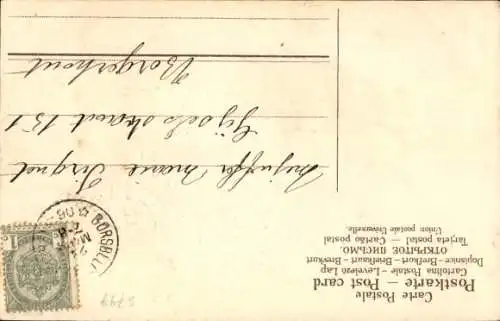 Carte Postale
Postkarte — Post card
Cartolina Postale — Levelező Lap
Dopisnice — Brefkort — Briefkaart — Brevkort
ОТКРЫТОЕ ПИСЬМО.
Tarjeta postal — Cartão postal
Union postale Universelle.
Mejuffer Marie
straat 151
Borgerhout
BORSBE
06
1